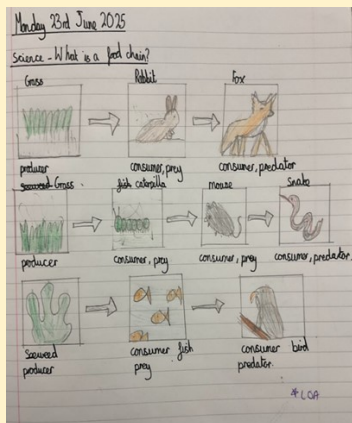 Monday 23rd June 2025
Science - What is a food chain?
Grass Rabbit Fox
producer consumer, prey consumer, predator
Grass caterpilla mouse Snake
producer consumer, prey consumer, prey consumer, predator.
Seaweed consumer fish consumer bird
producer prey predator.
*LOA